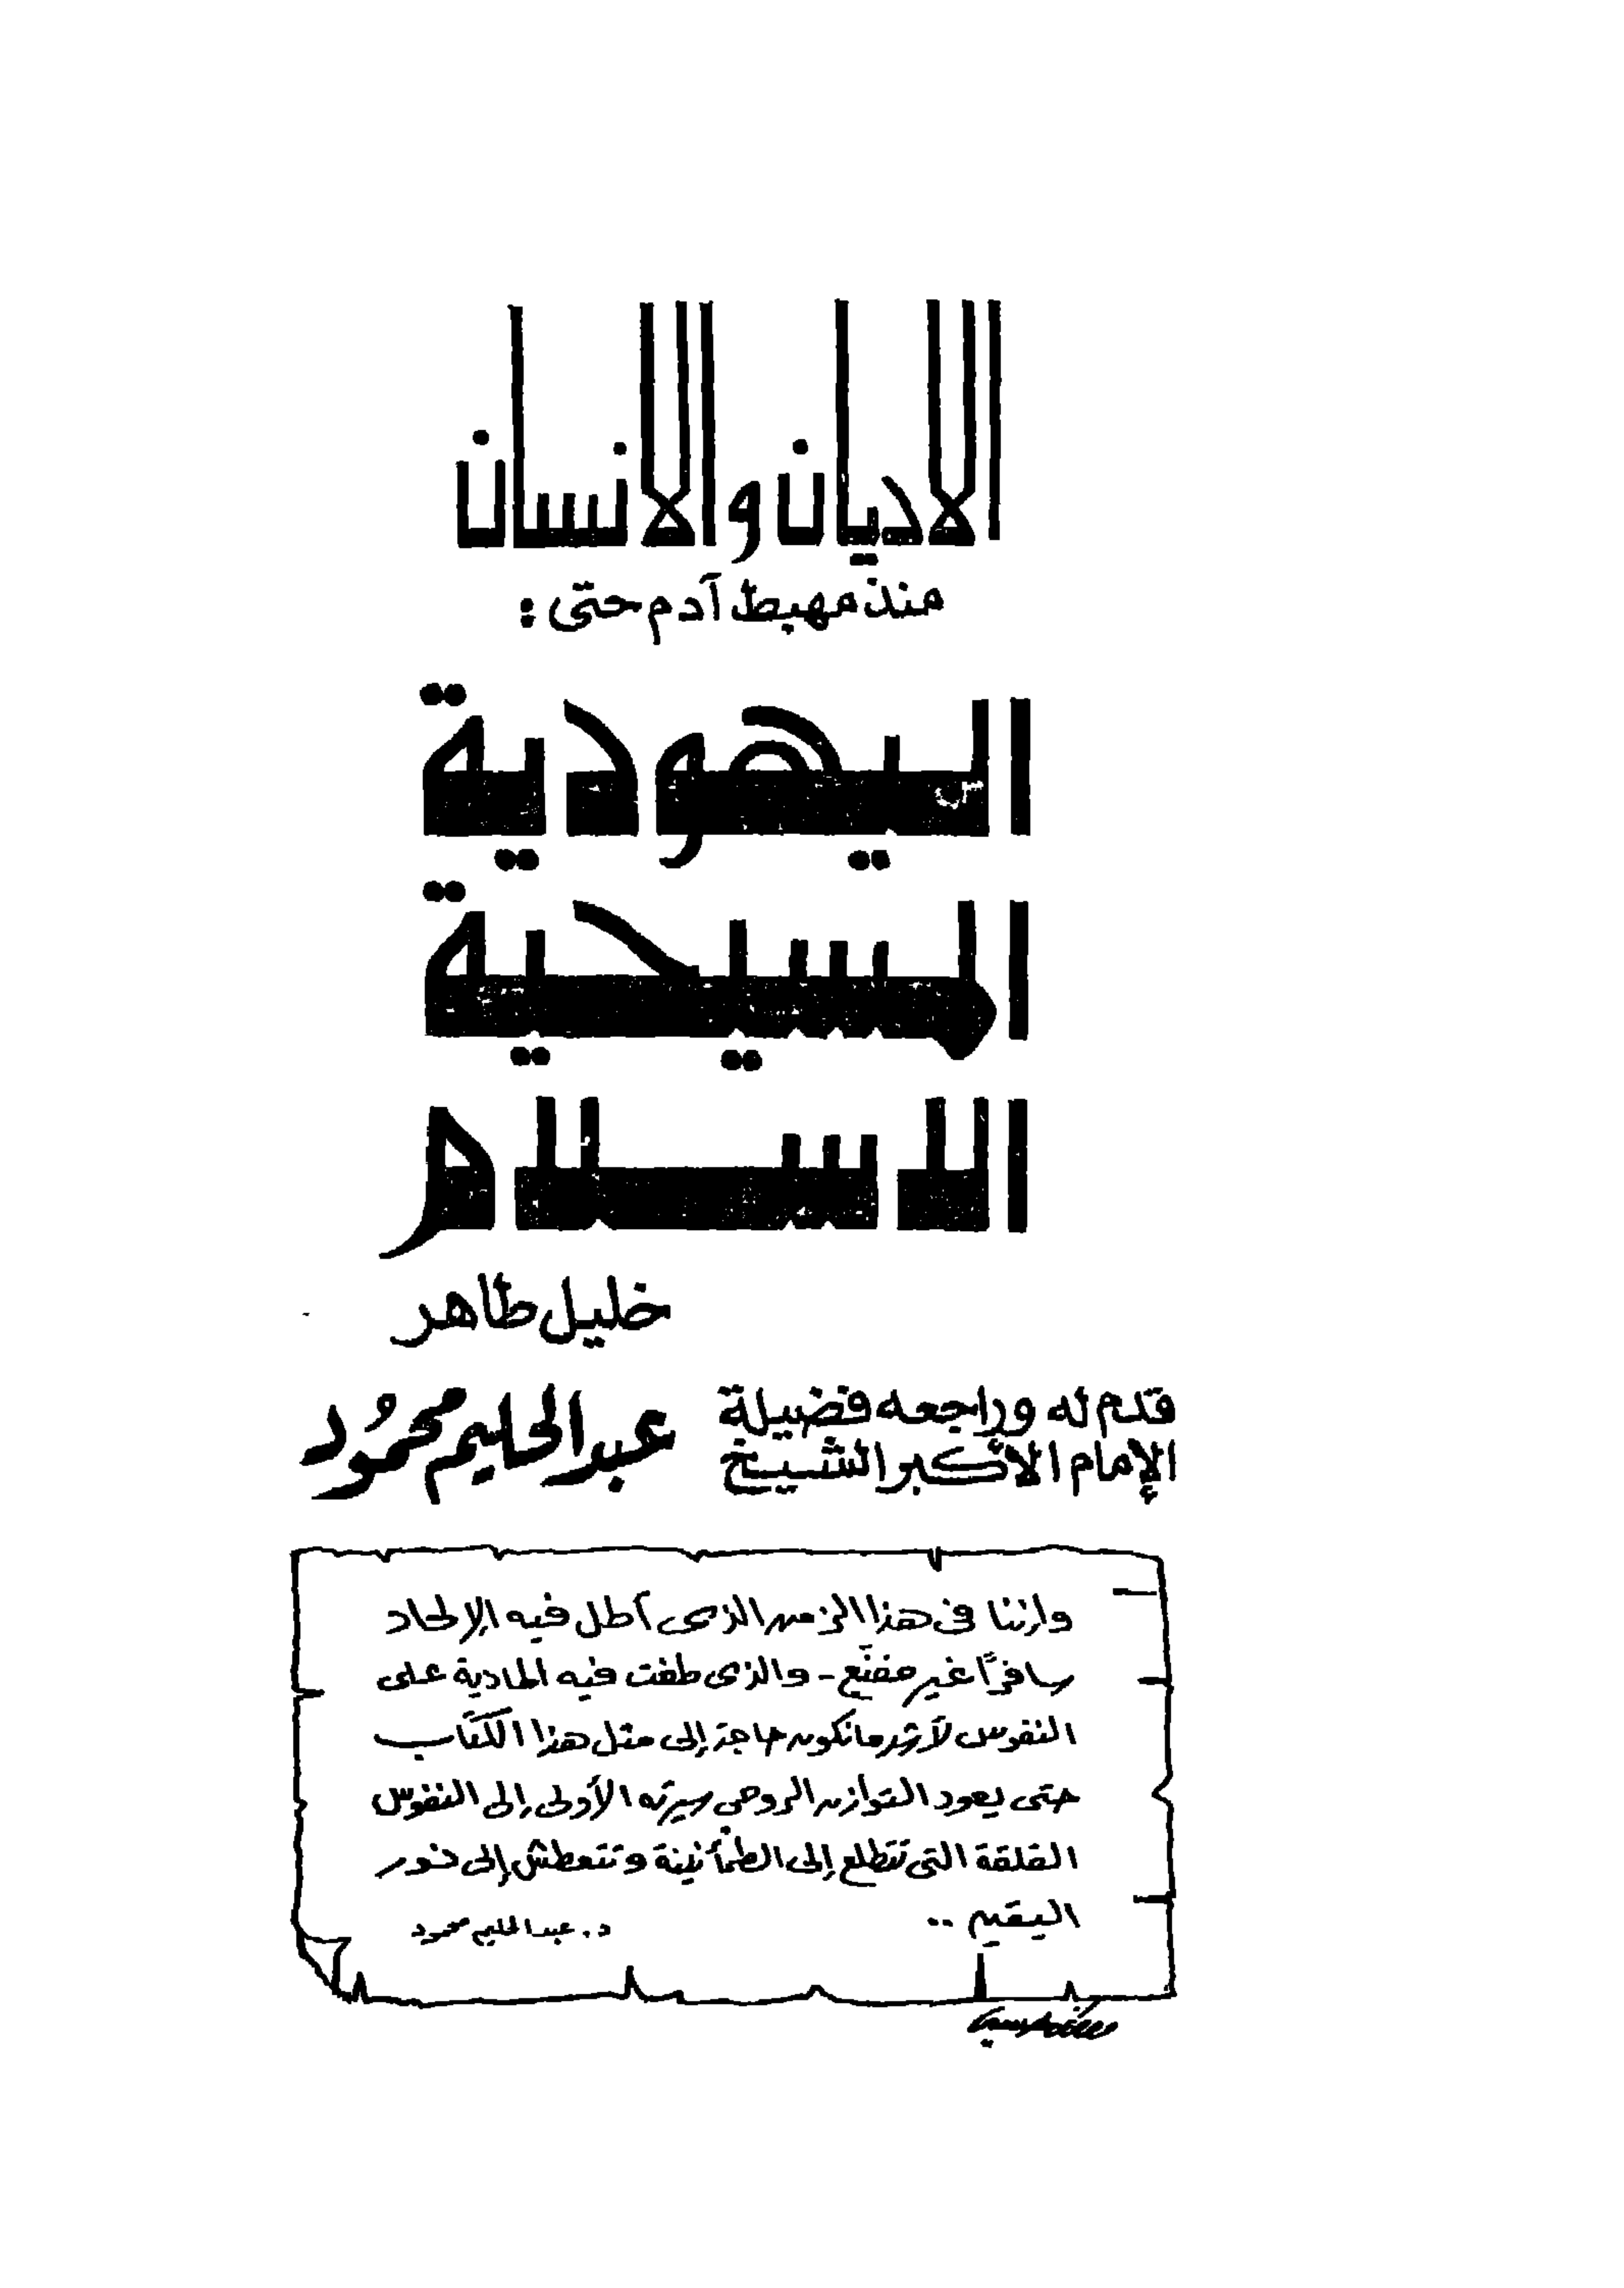 الاديان والانسان
منذ مهبط آدم حتى :
اليهودية
المسيحية
الاسلام
خليل طاهر
قدم له وراجعه فضيلة
الإمام الأكبر الشيخ
عبد الحليم محمُود
وإننا فى هذا الزمن الذى أطل فيه الإلحاد
سافرًا غير مقنّع - والذى طغت فيه المادية على
النفوس لأشد ما نكون حاجة إلى مثل هذا الكتاب
حتى يعود التوازن الروحى سيرته الأولى إلى النفوس
القلقة التى تتطلع إلى الطمأنينة وتتعطش إلى نور
اليقين ..
د. عبد الحليم محمود